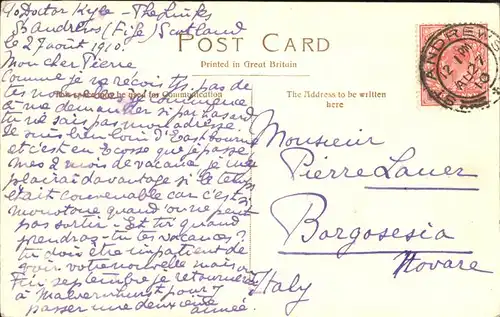 c/o Doctor Kyle - The Links
St Andrews (Fife) Scotland
le 27 août 1910.
Mon cher Pierre
Comme je ne reçois pas de
tes nouvelles je commence
à me demander si par hasard
tu ne sais pas mon adresse.
Je suis bien loin d'Eastbourne
et c'est en Ecosse que je passe
mes 2 mois de vacances je me
plairai davantage si le temps
était convenable car c'est si
monotone quand on ne peut
pas sortir. Et toi quand
prendras-tu tes vacances?
tu dois être impatient de
voir votre nouvelle maison
Fin septembre je retournerai
à Malvernhurst pour y
passer une deuxième
année.
POST CARD
Printed in Great Britain
This space may be used for Communication
The Address to be written
here
ST ANDREWS
12 15PM
AU 27
10
Monsieur
Pierre Lauer
Borgosesia
Novare
Italy